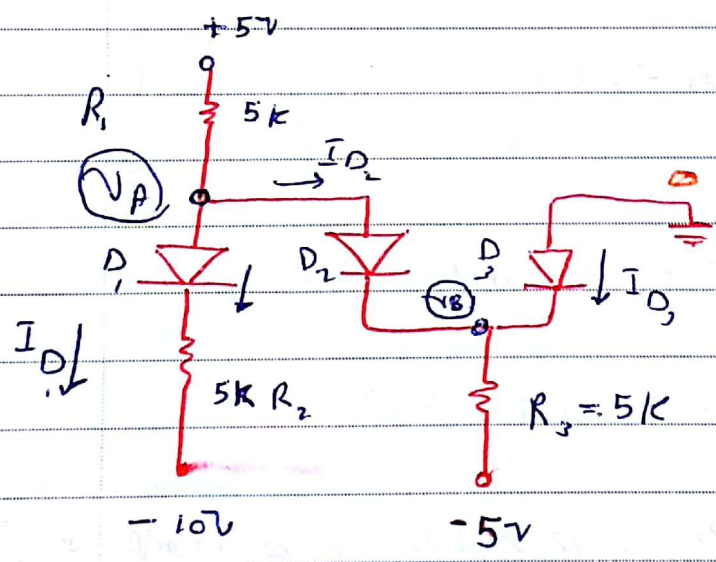 +5V
R₁ 5K
I D₂
VA
D₁ D₂ D₃
VB
I D₃
I D₁
5K R₂
R₃ = 5K
-10V
-5V